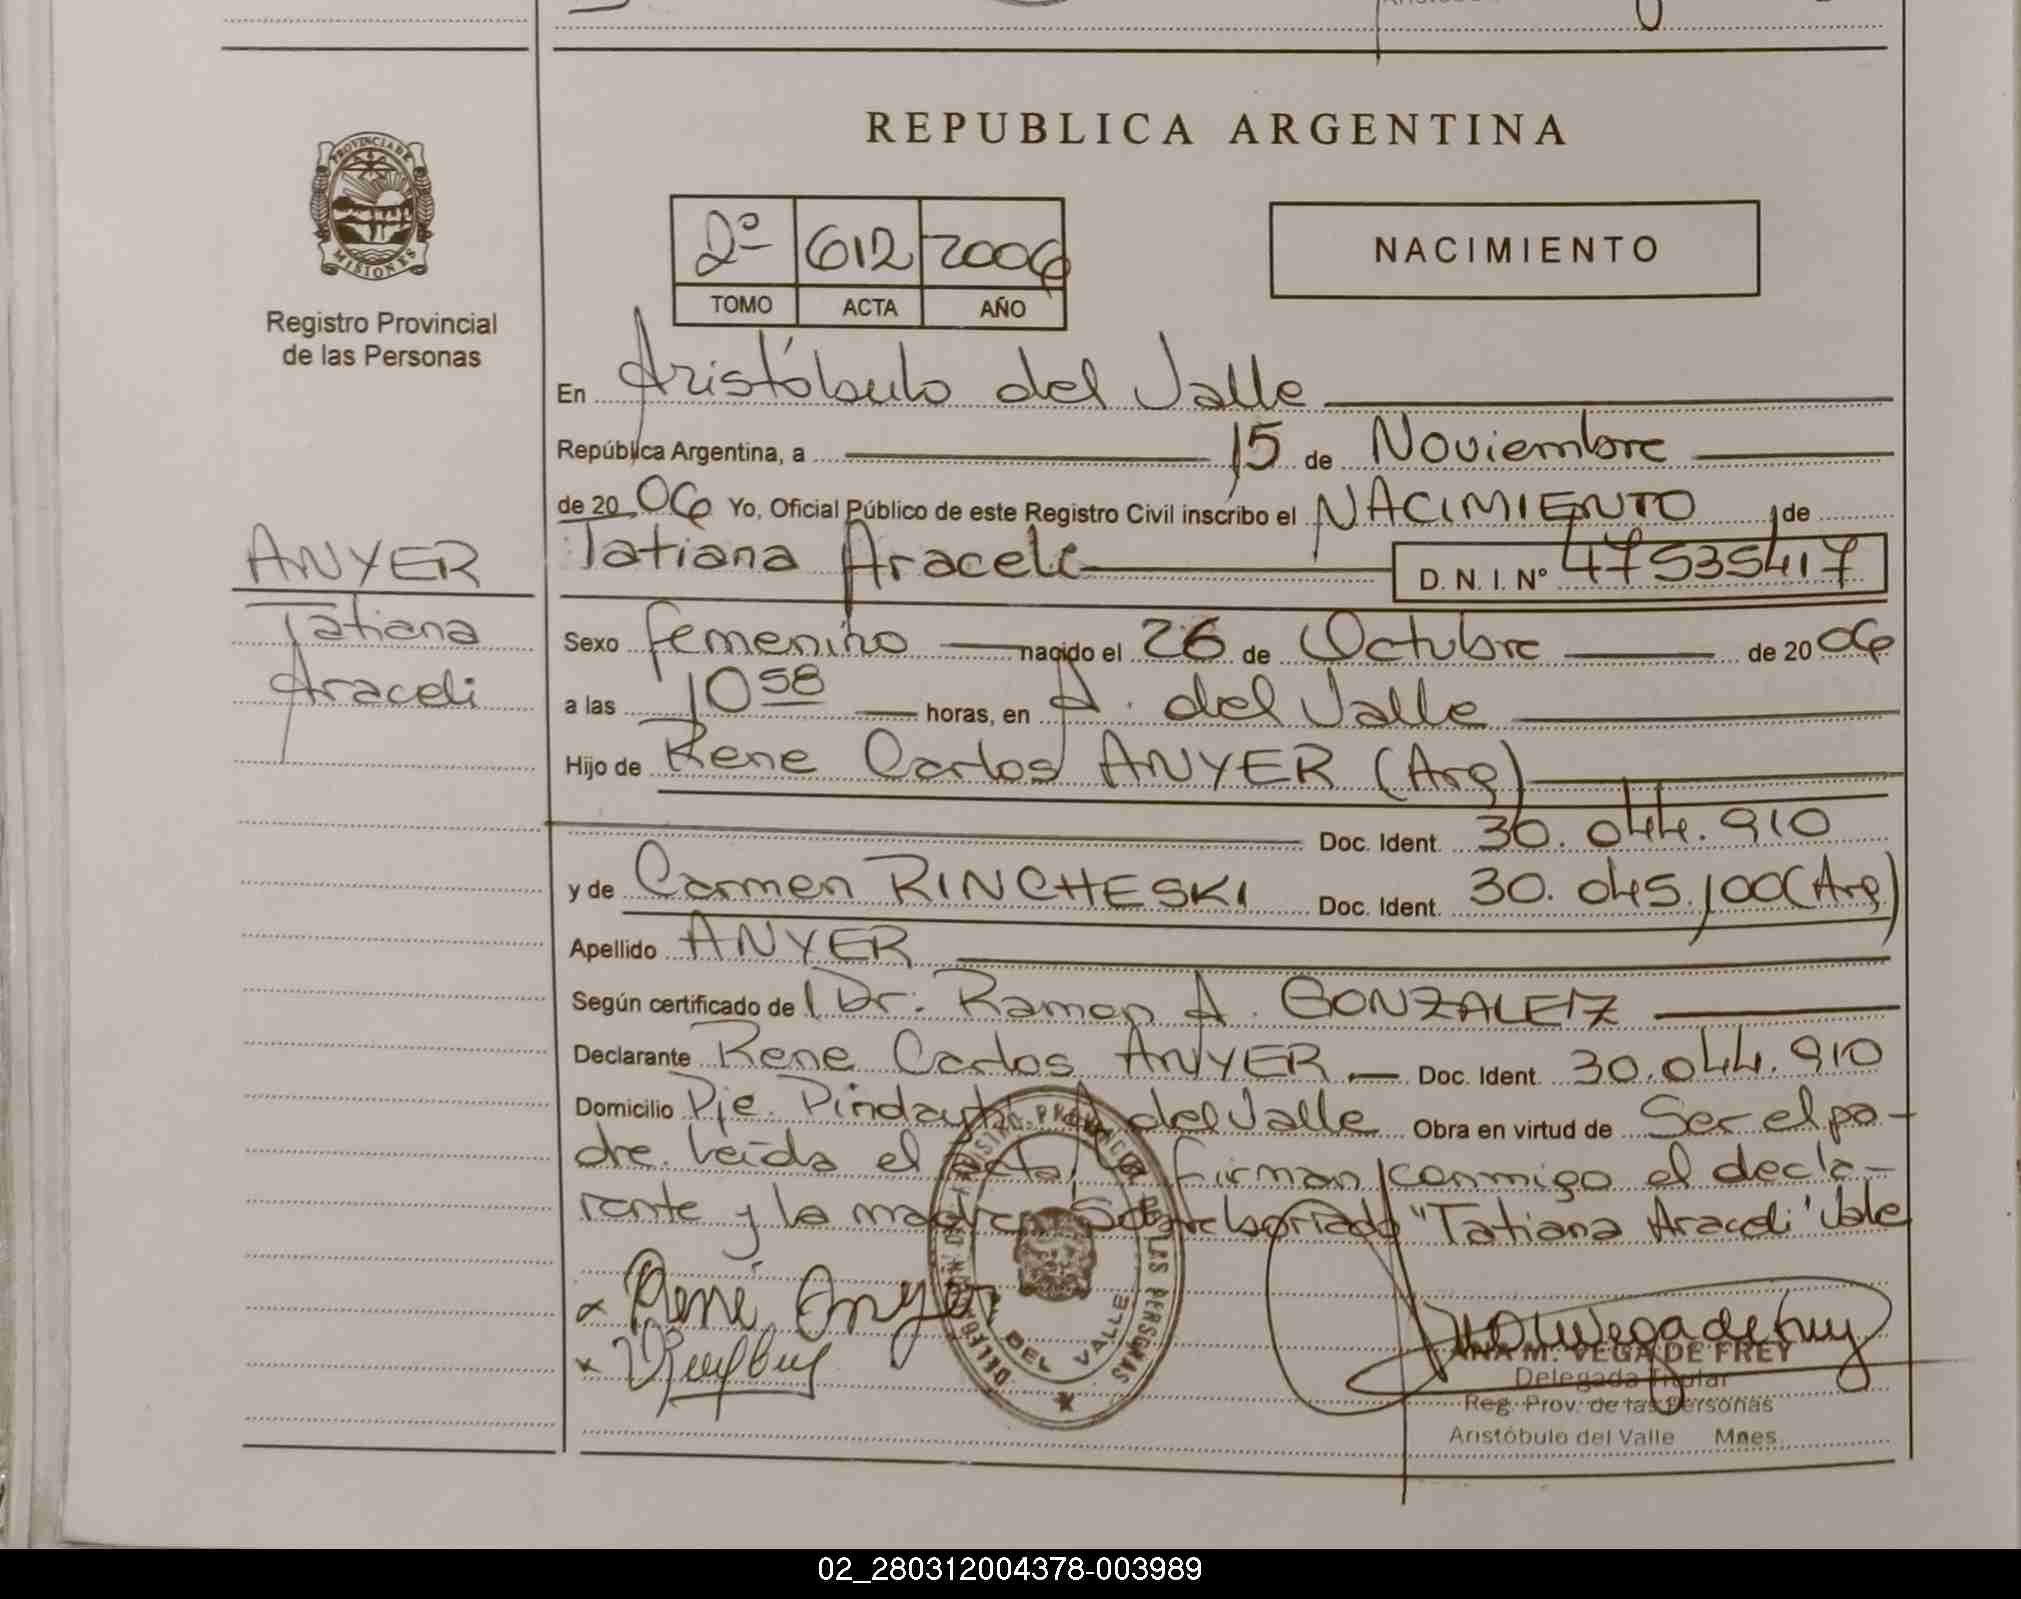 REPUBLICA ARGENTINA
PROVINCIA DE
MISIONES
Registro Provincial
de las Personas
2º 612 2006
TOMO ACTA AÑO
NACIMIENTO
En Aristóbulo del Valle
República Argentina, a 15 de Noviembre
de 20 06 Yo, Oficial Público de este Registro Civil inscribo el NACIMIENTO de
Tatiana Araceli D. N. I. Nº 47535417
ANYER
Tatiana
Araceli
Sexo femenino nacido el 26 de Octubre de 20 06
a las 10 58 horas, en A. del Valle
Hijo de Rene Carlos ANYER (Arg)
Doc. Ident. 30.044.910
y de Carmen RINCHESKI Doc. Ident. 30.045.100 (Arg)
Apellido ANYER
Según certificado de l Dr. Ramon A. GONZALEZ
Declarante Rene Carlos ANYER Doc. Ident. 30.044.910
Domicilio Pje. Pindayti A del Valle Obra en virtud de Ser el pa-
dre. Leída el acta, la firman conmigo el decla-
rante y la madre. Sobreborrado "Tatiana Araceli" Vale
x René Anyer
x
DEL VALLE
ANA M. VEGA DE FREY
Delegada Titular
Reg. Prov. de las Personas
Aristóbulo del Valle Mnes
02_280312004378-003989